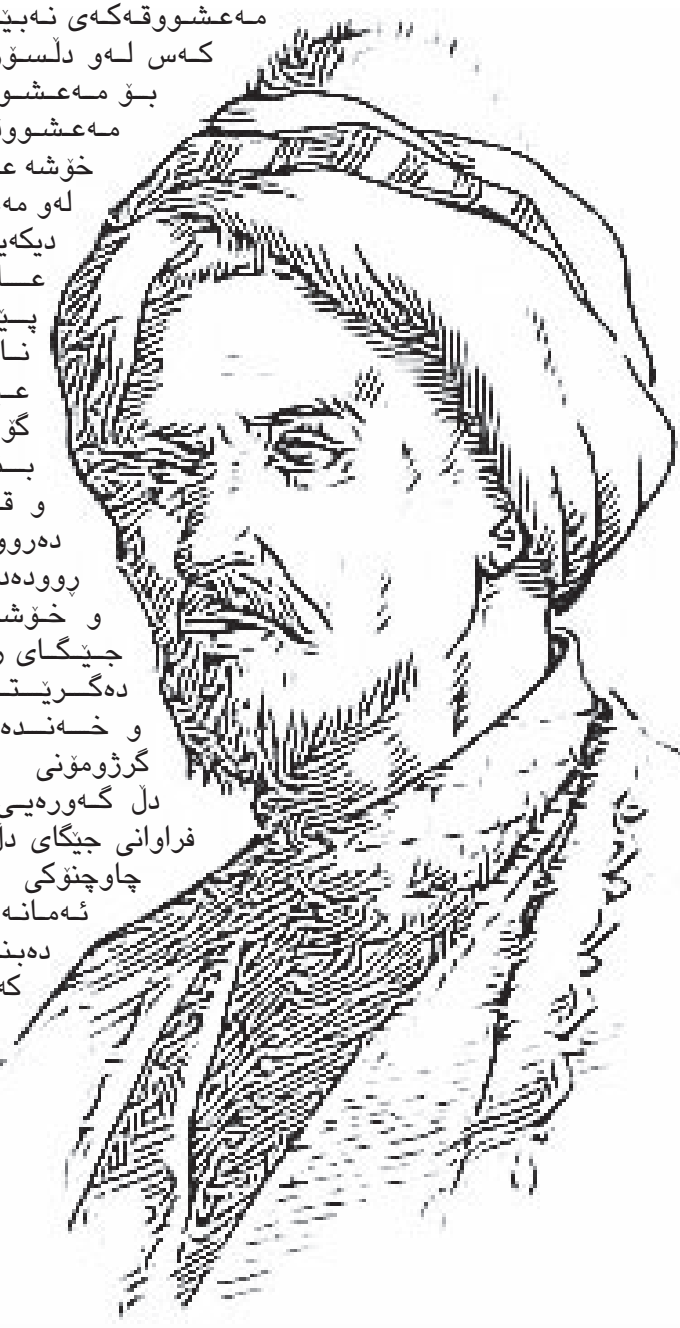 مەعشووقەکەی نەبێ
کەس لەو دڵسۆز
بۆ مەعشو
مەعشووق
خۆشە ع
لەو مە
دیکەی
عا
پێ
نا
ع
گۆ
بە
و ق
دەروو
ڕوودەد
و خۆش
جێگای ر
دەگرێت
و خەندە
گرژومۆنی
دڵ گەورەیی
فراوانی جێگای دڵ
چاوچنۆکی
ئەمانە
دەبن
کە